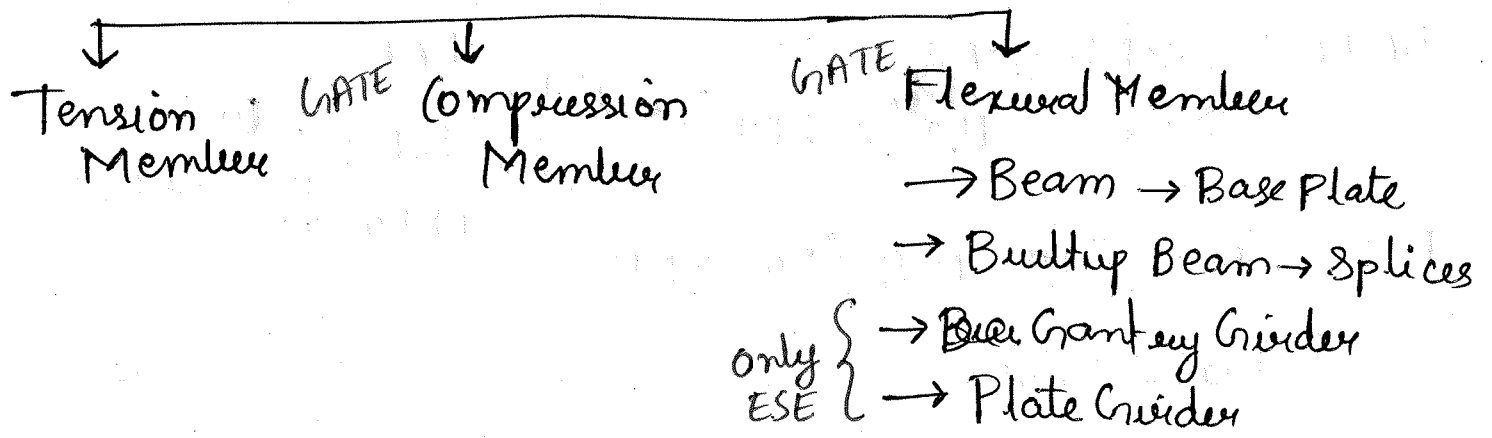 Tension Member
GATE
Compression Member
GATE
Flexural Member
→ Beam → Base Plate
→ Builtup Beam → Splices
only ESE { → Gantry Girder
→ Plate Girder